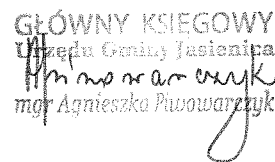 GŁÓWNY KSIĘGOWY
Urzędu Gminy Jasienica
Piwowarczyk
mgr Agnieszka Piwowarczyk